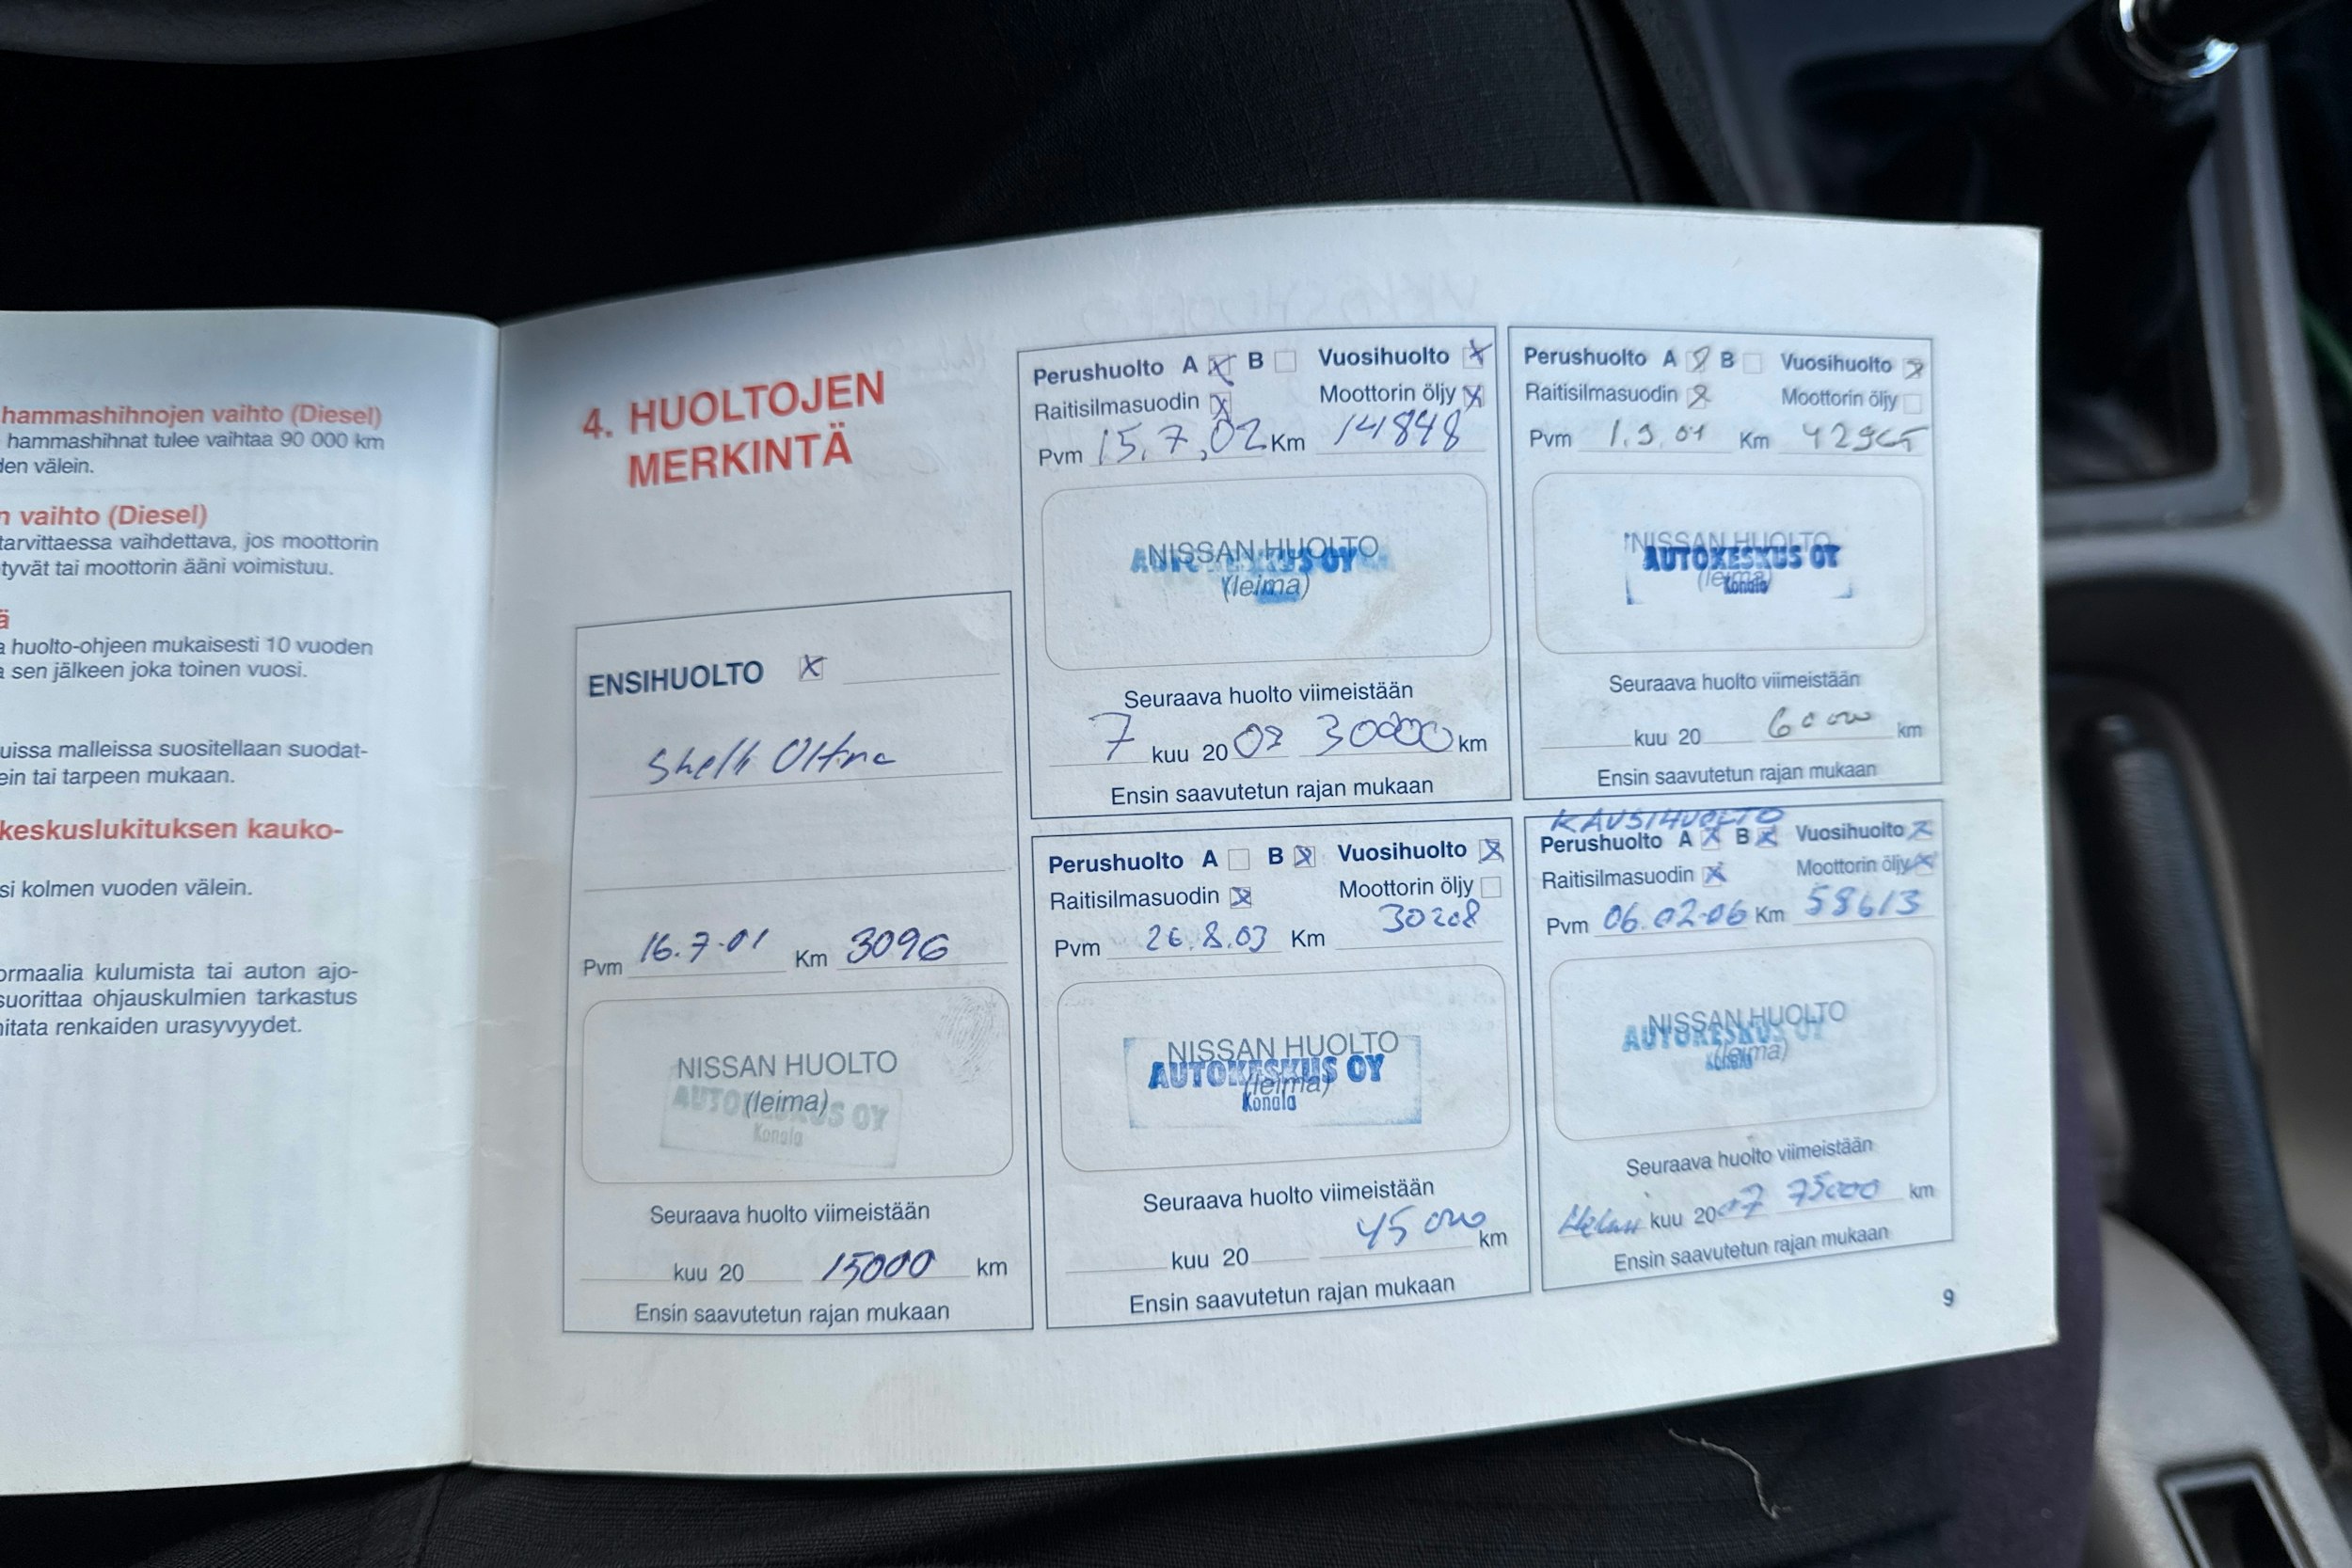 hammashihnojen vaihto (Diesel)
hammashihnat tulee vaihtaa 90 000 km
den välein.
n vaihto (Diesel)
tarvittaessa vaihdettava, jos moottorin
tyvät tai moottorin ääni voimistuu.
ä
a huolto-ohjeen mukaisesti 10 vuoden
a sen jälkeen joka toinen vuosi.
uissa malleissa suositellaan suodat-
ein tai tarpeen mukaan.
keskuslukituksen kauko-
si kolmen vuoden välein.
ormaalia kulumista tai auton ajo-
suorittaa ohjauskulmien tarkastus
nitata renkaiden urasyvyydet.
4. HUOLTOJEN
MERKINTÄ
ENSIHUOLTO X
Shell
Pvm 16.7.01 Km 3096
NISSAN HUOLTO
(leima)
AUTOKESKUS OY
Konala
Seuraava huolto viimeistään
kuu 20 15000 km
Ensin saavutetun rajan mukaan
Perushuolto A X B Vuosihuolto X
Raitisilmasuodin X Moottorin öljy X
Pvm 15.7.02 Km 14848
NISSAN HUOLTO
AUTOKESKUS OY
(leima)
Seuraava huolto viimeistään
7 kuu 20 03 30000 km
Ensin saavutetun rajan mukaan
Perushuolto A B X Vuosihuolto X
Raitisilmasuodin X Moottorin öljy
Pvm 26.8.03 Km 30208
NISSAN HUOLTO
AUTOKESKUS OY
(leima)
Konala
Seuraava huolto viimeistään
45 000
kuu 20 km
Ensin saavutetun rajan mukaan
Perushuolto A X B Vuosihuolto X
Raitisilmasuodin X Moottorin öljy
Pvm Km
NISSAN HUOLTO
AUTOKESKUS OY
(leima)
Konala
Seuraava huolto viimeistään
kuu 20 60000 km
Ensin saavutetun rajan mukaan
KAUSIHUOLTO
Perushuolto A X B X Vuosihuolto X
Raitisilmasuodin X Moottorin öljy X
Pvm 06.02.06 Km 58613
NISSAN HUOLTO
AUTOKESKUS OY
(leima)
Konala
Seuraava huolto viimeistään
kuu 20 07 75000 km
Ensin saavutetun rajan mukaan
9